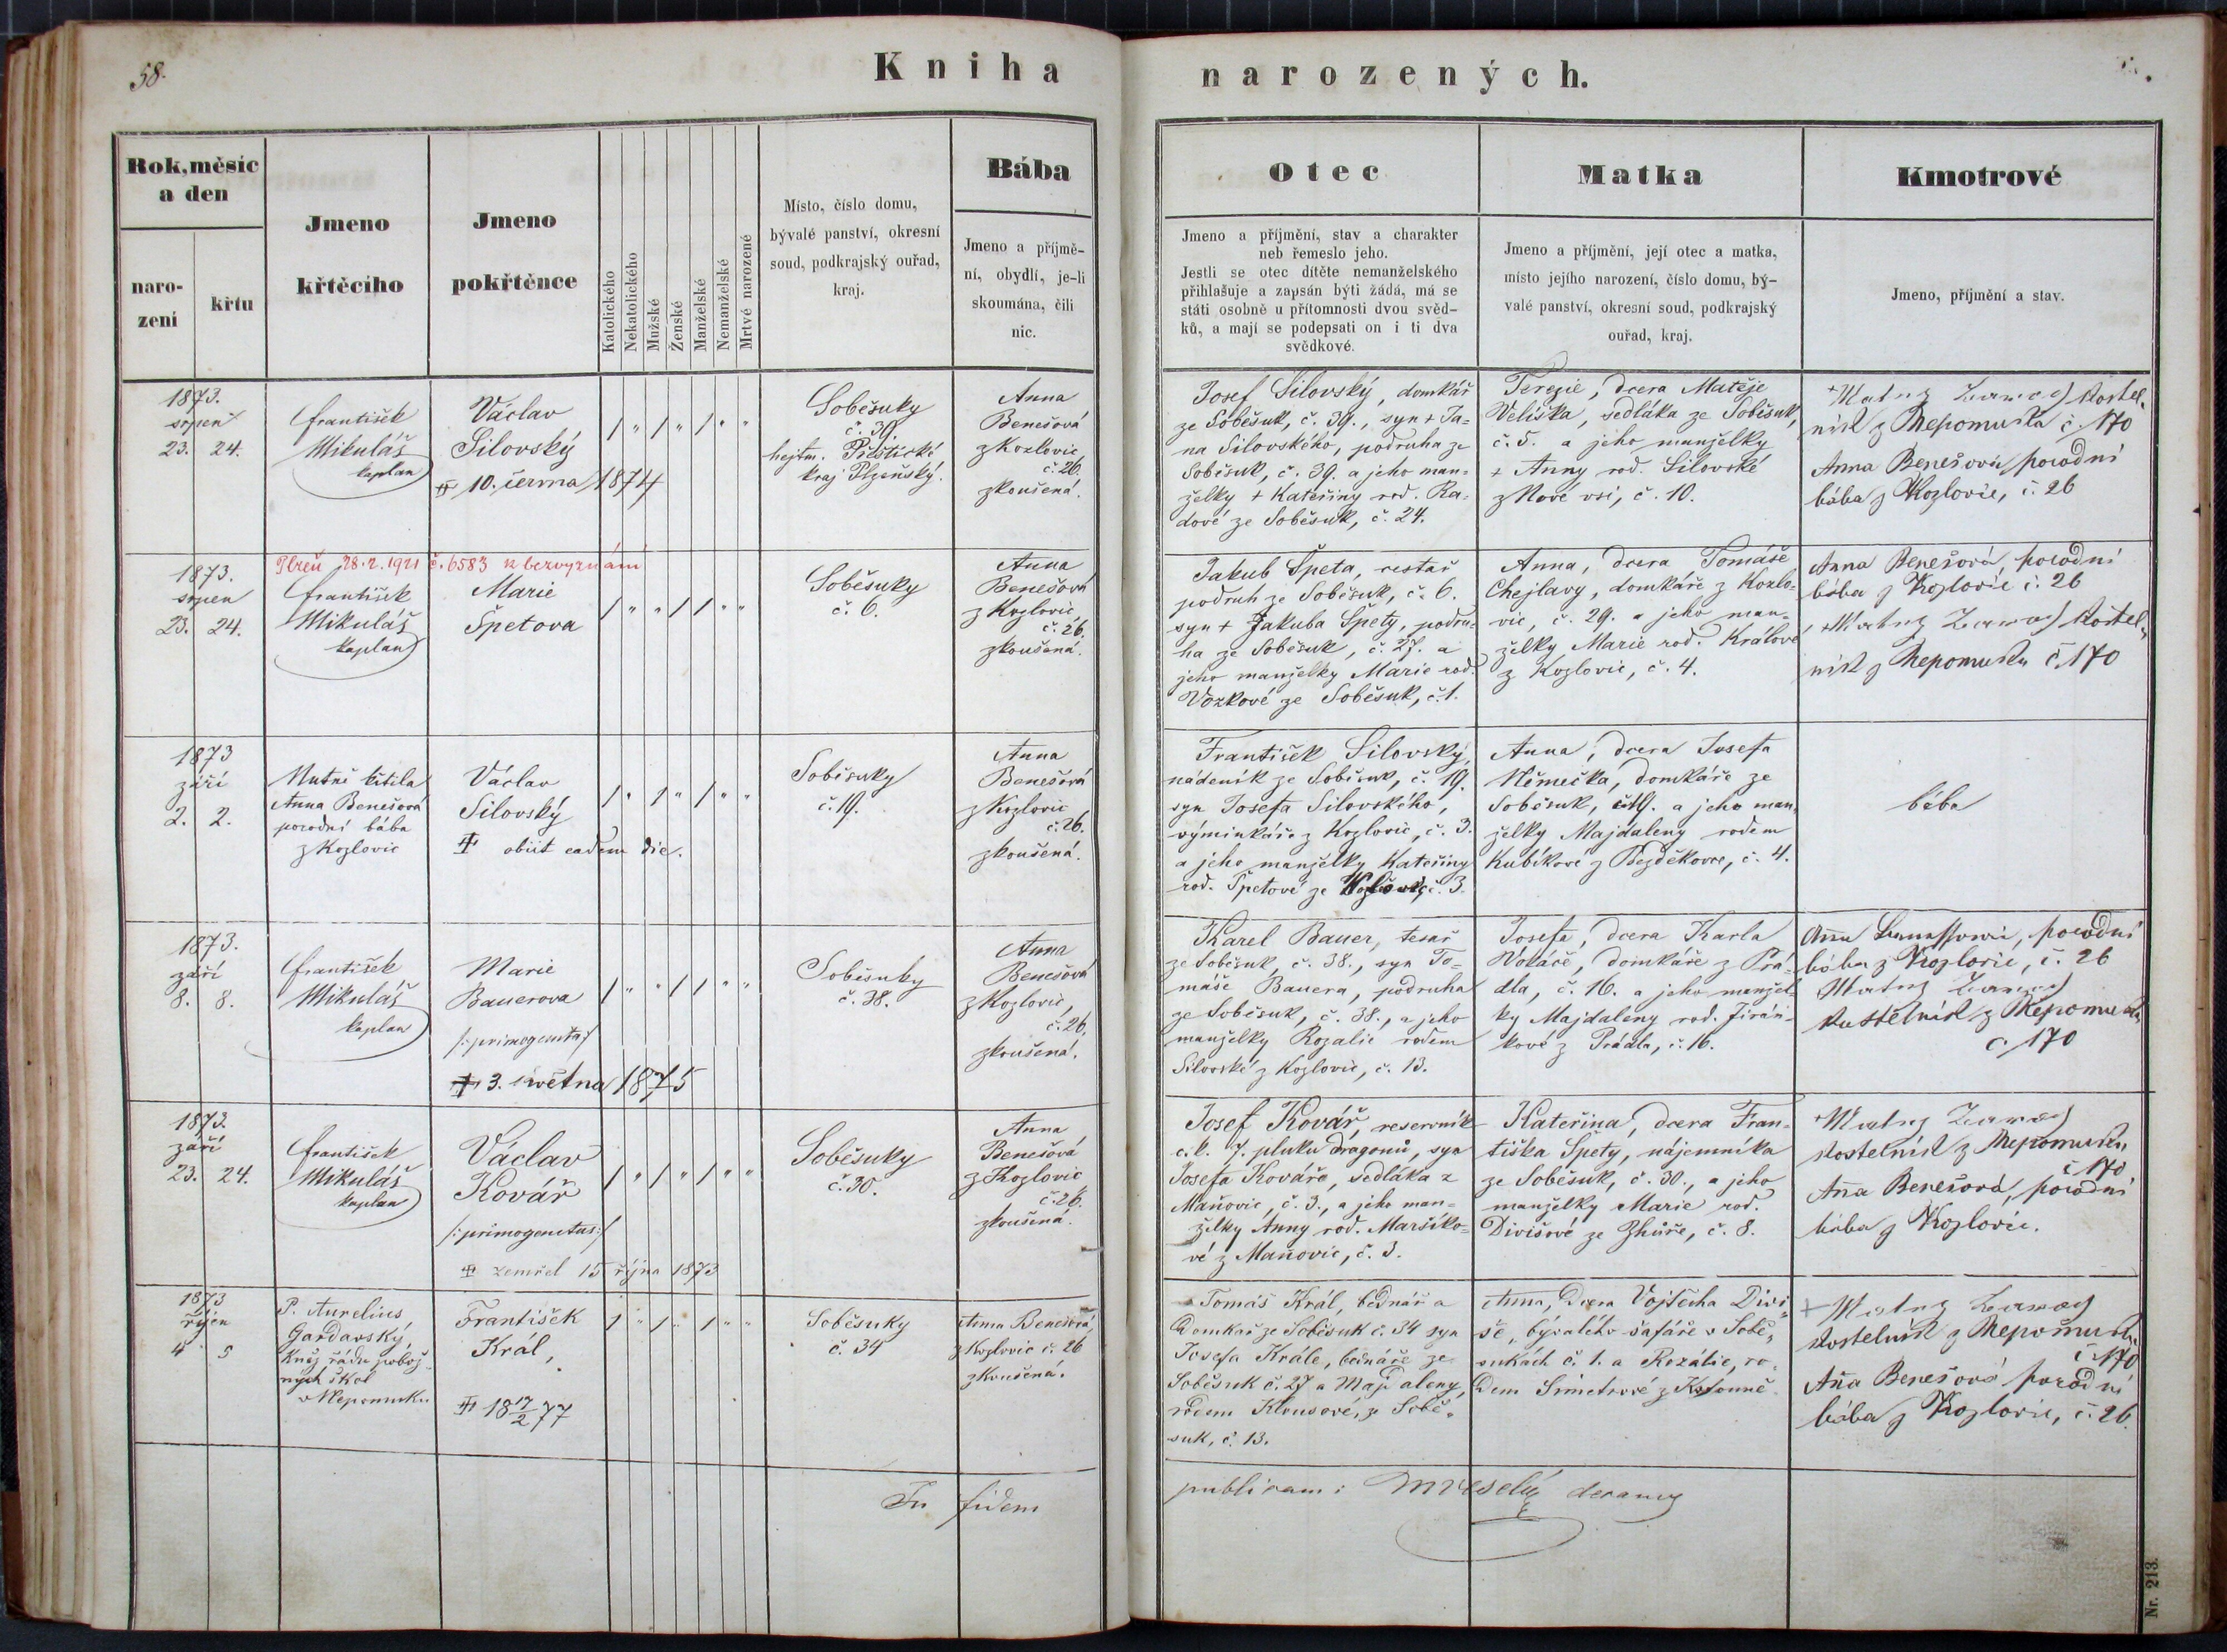 58.
Kniha narozených.
Rok, měsíc
a den
naro-
zení
křtu
Jmeno
křtěcího
Jmeno
pokřtěnce
Katolického
Nekatolického
Mužské
Ženské
Manželské
Nemanželské
Mrtvé narozené
Místo, číslo domu,
bývalé panství, okresní
soud, podkrajský ouřad,
kraj.
Bába
Jmeno a příjmě-
ní, obydlí, je-li
skoumána, čili
nic.
Otec
Jmeno a příjmění, stav a charakter
neb řemeslo jeho.
Jestli se otec dítěte nemanželského
přihlašuje a zapsán býti žádá, má se
státi osobně u přítomnosti dvou svěd-
ků, a mají se podepsati on i ti dva
svědkové.
Matka
Jmeno a příjmění, její otec a matka,
místo jejího narození, číslo domu, bý-
valé panství, okresní soud, podkrajský
ouřad, kraj.
Kmotrové
Jmeno, příjmění a stav.
1873.
srpen
23. 24.
František
Mikuláš
kaplan
Václav
Silovský
10. června 1874
1 " 1 " 1 " "
Soběsuky
č. 39
hejtm. Přeštické
kraj Plzeňský.
Anna
Benešová
z Kozlovic
č. 26.
zkoušená.
Josef Silovský, domkář
ze Soběsuk, č. 39., syn + Ja-
na Silovského, podruha ze
Soběsuk, č. 39. a jeho man-
želky + Kateřiny rod. Ra-
dové ze Soběsuk, č. 24.
Terezie, dcera Matěje
Veliška, sedláka ze Soběsuk,
č. 5. a jeho manželky
+ Anny rod. Silovské
z Nové vsi, č. 10.
kostel-
ník z Nepomuka č. 170
Anna Benešová porodní
bába z Kozlovic, č. 26
Plzeň 28.2.1921 č. 6583 k bezvyznání
1873.
srpen
23. 24.
František
Mikuláš
kaplan
Marie
Špetova
1 " " 1 1 " "
Soběsuky
č. 6.
Anna
Benešová
z Kozlovic
č. 26.
zkoušená.
Jakub Špeta, cestař
podruh ze Soběsuk, č. 6.
syn + Jakuba Špety, podru-
ha ze Soběsuk, č. 27. a
jeho manželky Marie rod.
Vozkové ze Soběsuk, č. 1.
Anna, dcera Tomáše
Chejlavy, domkáře z Kozlo-
vic, č. 29. a jeho man-
želky Marie rod. Králové
z Kozlovic, č. 4.
Anna Benešová, porodní
bába z Kozlovic č. 26
kostel-
ník z Nepomuku č. 170
1873
září
2. 2.
Nutně křtila
Anna Benešová
porodní bába
z Kozlovic
Václav
Silovský
obiit eadem die.
1 " 1 " 1 " "
Soběsuky
č. 19.
Anna
Benešová
z Kozlovic
č. 26.
zkoušená.
František Silovský,
nádeník ze Soběsuk, č. 19.
syn Josefa Silovského,
výminkáře z Kozlovic, č. 3.
a jeho manželky Kateřiny
rod. Špetové ze Kozlovic č. 3.
Anna, dcera Josefa
Němečka, domkáře ze
Soběsuk, č. 19. a jeho man-
želky Majdaleny rodem
Kubíkové z Bezděkovce, č. 4.
bába
1873.
září
8. 8.
František
Mikuláš
kaplan
Marie
Bauerova
/: primogenita :/
3. května 1875
1 " " 1 1 " "
Soběsuky
č. 38.
Anna
Benešová
z Kozlovic,
č. 26,
zkoušená.
Karel Bauer, tesař
ze Soběsuk, č. 38., syn To-
máše Bauera, podruha
ze Soběsuk, č. 38., a jeho
manželky Rozalie rodem
Silovské z Kozlovic, č. 13.
Josefa, dcera Karla
Vokáče, domkáře z Prá-
dla, č. 16. a jeho manžel-
ky Majdaleny rod. Jirán-
kové z Prádla, č. 16.
porodní
bába z Kozlovic, č. 26
kostelník z Nepomuku
č. 170
1873.
září
23. 24.
František
Mikuláš
kaplan
Václav
Kovář
/: primogenitus :/
zemřel 15 října 1873
1 " 1 " 1 " "
Soběsuky
č. 30.
Anna
Benešová
z Kozlovic
č. 26.
zkoušená.
Josef Kovář, reservník
c. k. 7. pluku dragonů, syn
Josefa Kováře, sedláka z
Maňovic, č. 3., a jeho man-
želky Anny rod. Maršíko-
vé z Maňovic, č. 3.
Kateřina, dcera Fran-
tiška Špety, nájemníka
ze Soběsuk, č. 30., a jeho
manželky Marie rod.
Divišové ze Zhůře, č. 8.
kostelník z Nepomuku
č. 170
Anna Benešová, porodní
bába z Kozlovic.
1873
říjen
4 5
P. Aurelius
Gardavský,
Kněz řádu pobož-
ných škol
v Nepomuku
František
Král,
18 17/2 77
1 " 1 " 1 " "
Soběsuky
č. 34
Anna Benešová
z Kozlovic č. 26
zkoušená.
Tomáš Král, bednář a
domkař ze Soběsuk č. 34 syn
Josefa Krále, bednáře ze
Soběsuk č. 27 a Majdaleny,
rodem Klousové, ze Sobě-
suk, č. 13.
Anna, dcera Vojtěcha Divi-
še, bývalého šafáře v Sobě-
sukách č. 1. a Rozálie, ro-
dem
kostelník z Nepomuku
č. 170
Anna Benešová porodní
bába z Kozlovic, č. 26
In fidem publicam:
Nr. 213.